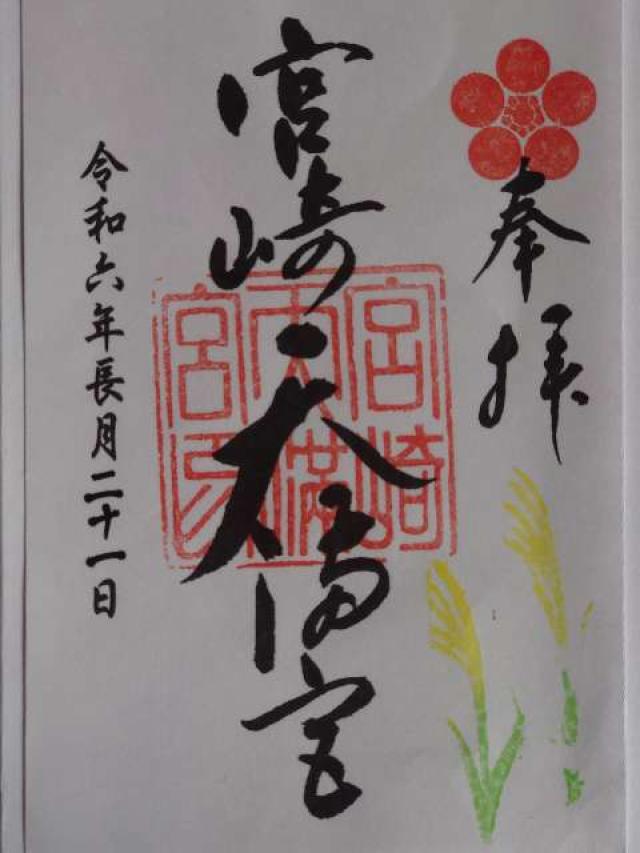 奉拝
宮崎天満宮
宮崎
天満
宮印
令和六年長月二十一日